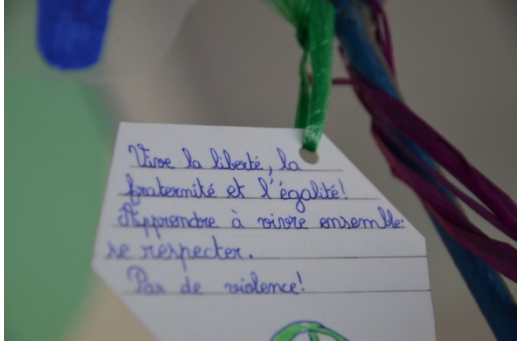 Vive la liberté, la
fraternité et l'égalité!
Apprendre à vivre ensemble:
se respecter.
Pas de violence!